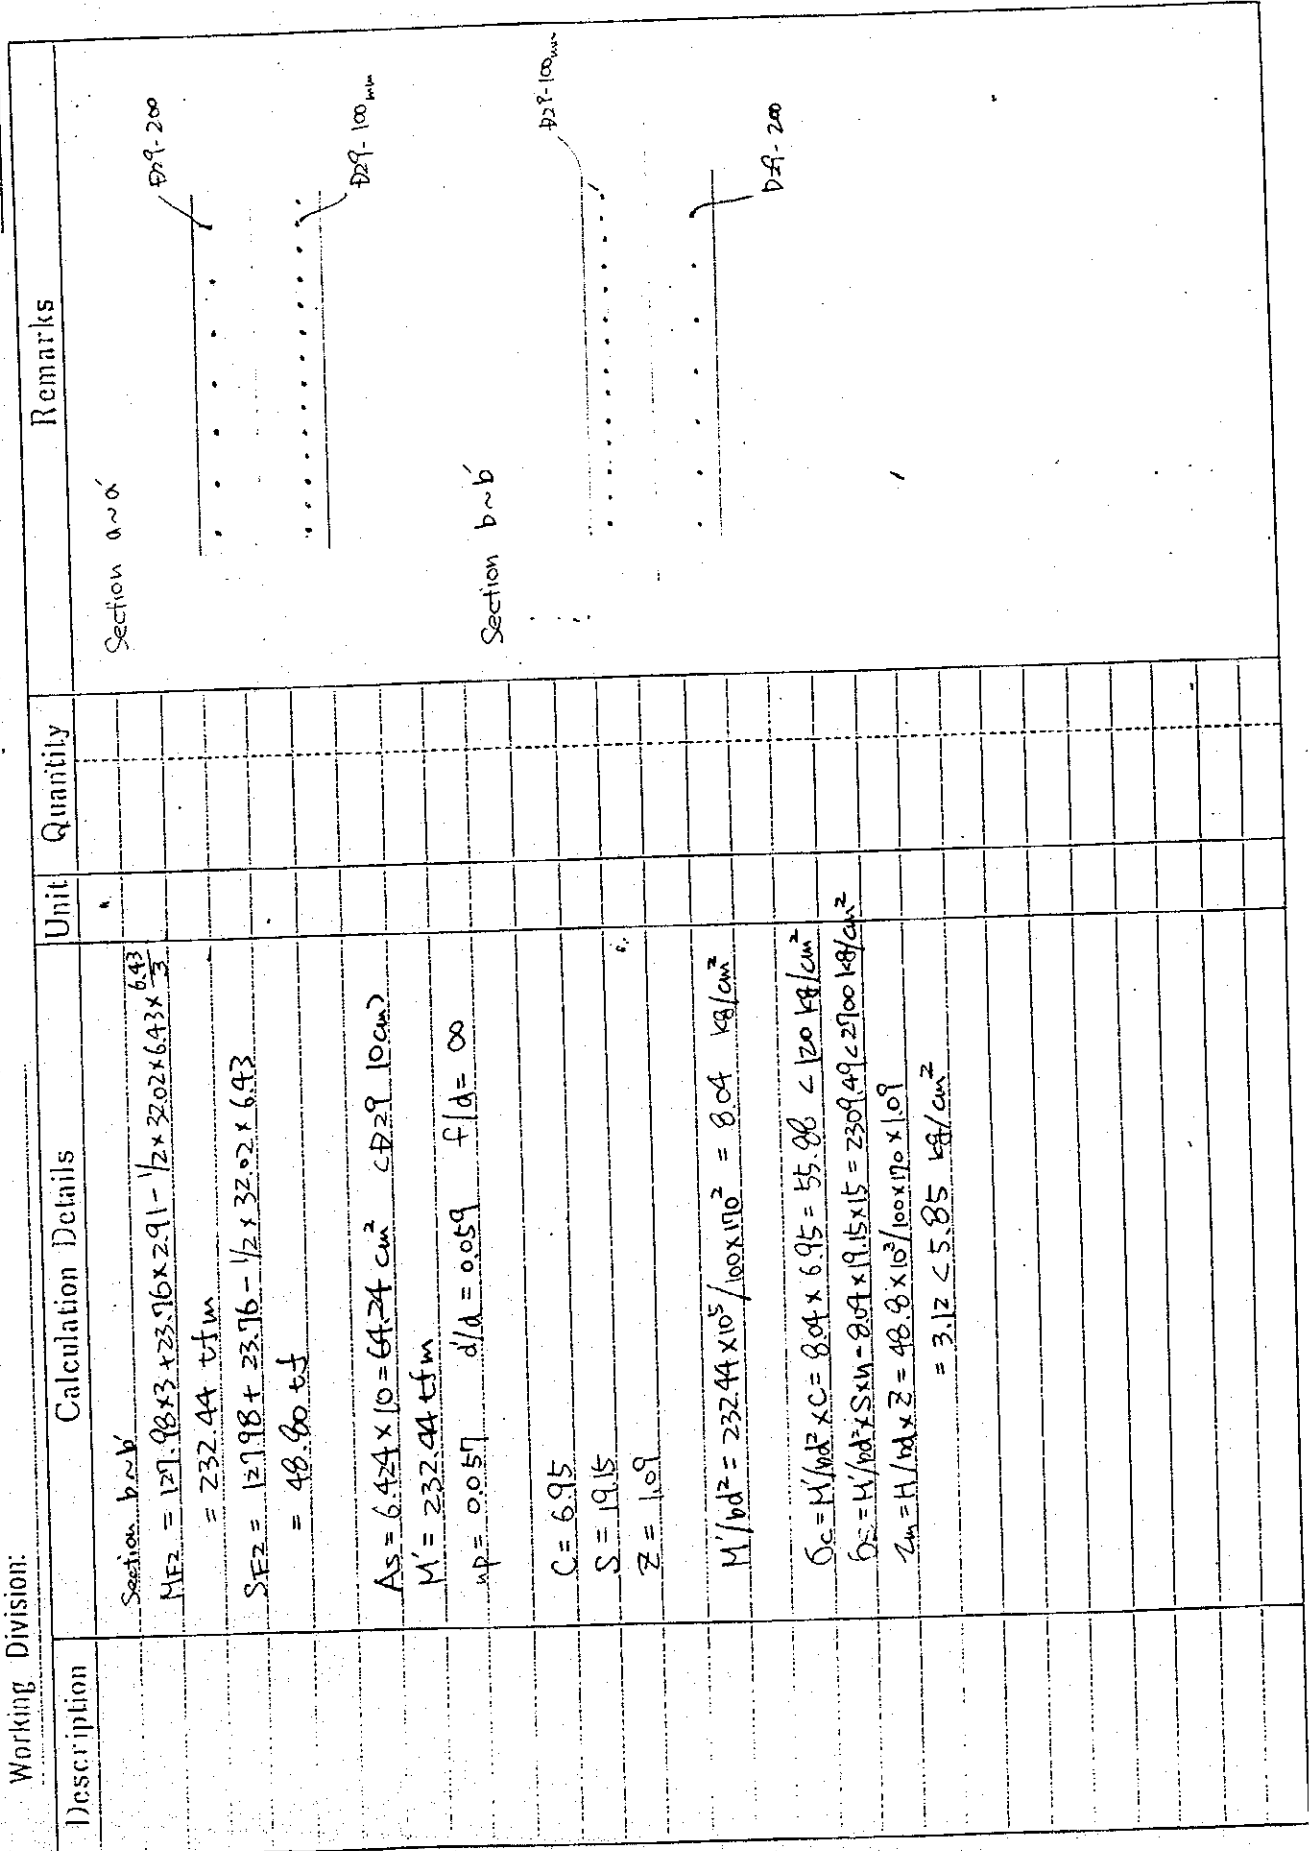 Working Division:
Description Calculation Details Unit Quantity Remarks
Section b~b'
MF2 = 127.98×3+23.76×2.91-1/2×32.02×6.43×6.43/3
= 232.44 tfm
SF2 = 127.98 + 23.76 - 1/2 × 32.02 × 6.43
= 48.80 tf
As = 6.424 × 10 = 64.24 cm² (D29 10cm)
M' = 232.44 tfm
np = 0.057 d'/d = 0.059 f/d = ∞
C = 6.95
S = 19.15
Z = 1.09
M'/bd² = 232.44 ×10⁵/100×170² = 8.04 kg/cm²
σc = M'/bd² × C = 8.04 × 6.95 = 55.88 < 120 kg/cm²
σs = M'/bd² × S×n = 8.04 × 19.15×15 = 2309.49 < 2700 kg/cm²
τm = H/bd × Z = 48.8 × 10³/100×170 × 1.09
= 3.12 < 5.85 kg/cm²
Section a~a'
D29-200
D29-100mm
Section b~b'
D29-100mm
D29-200